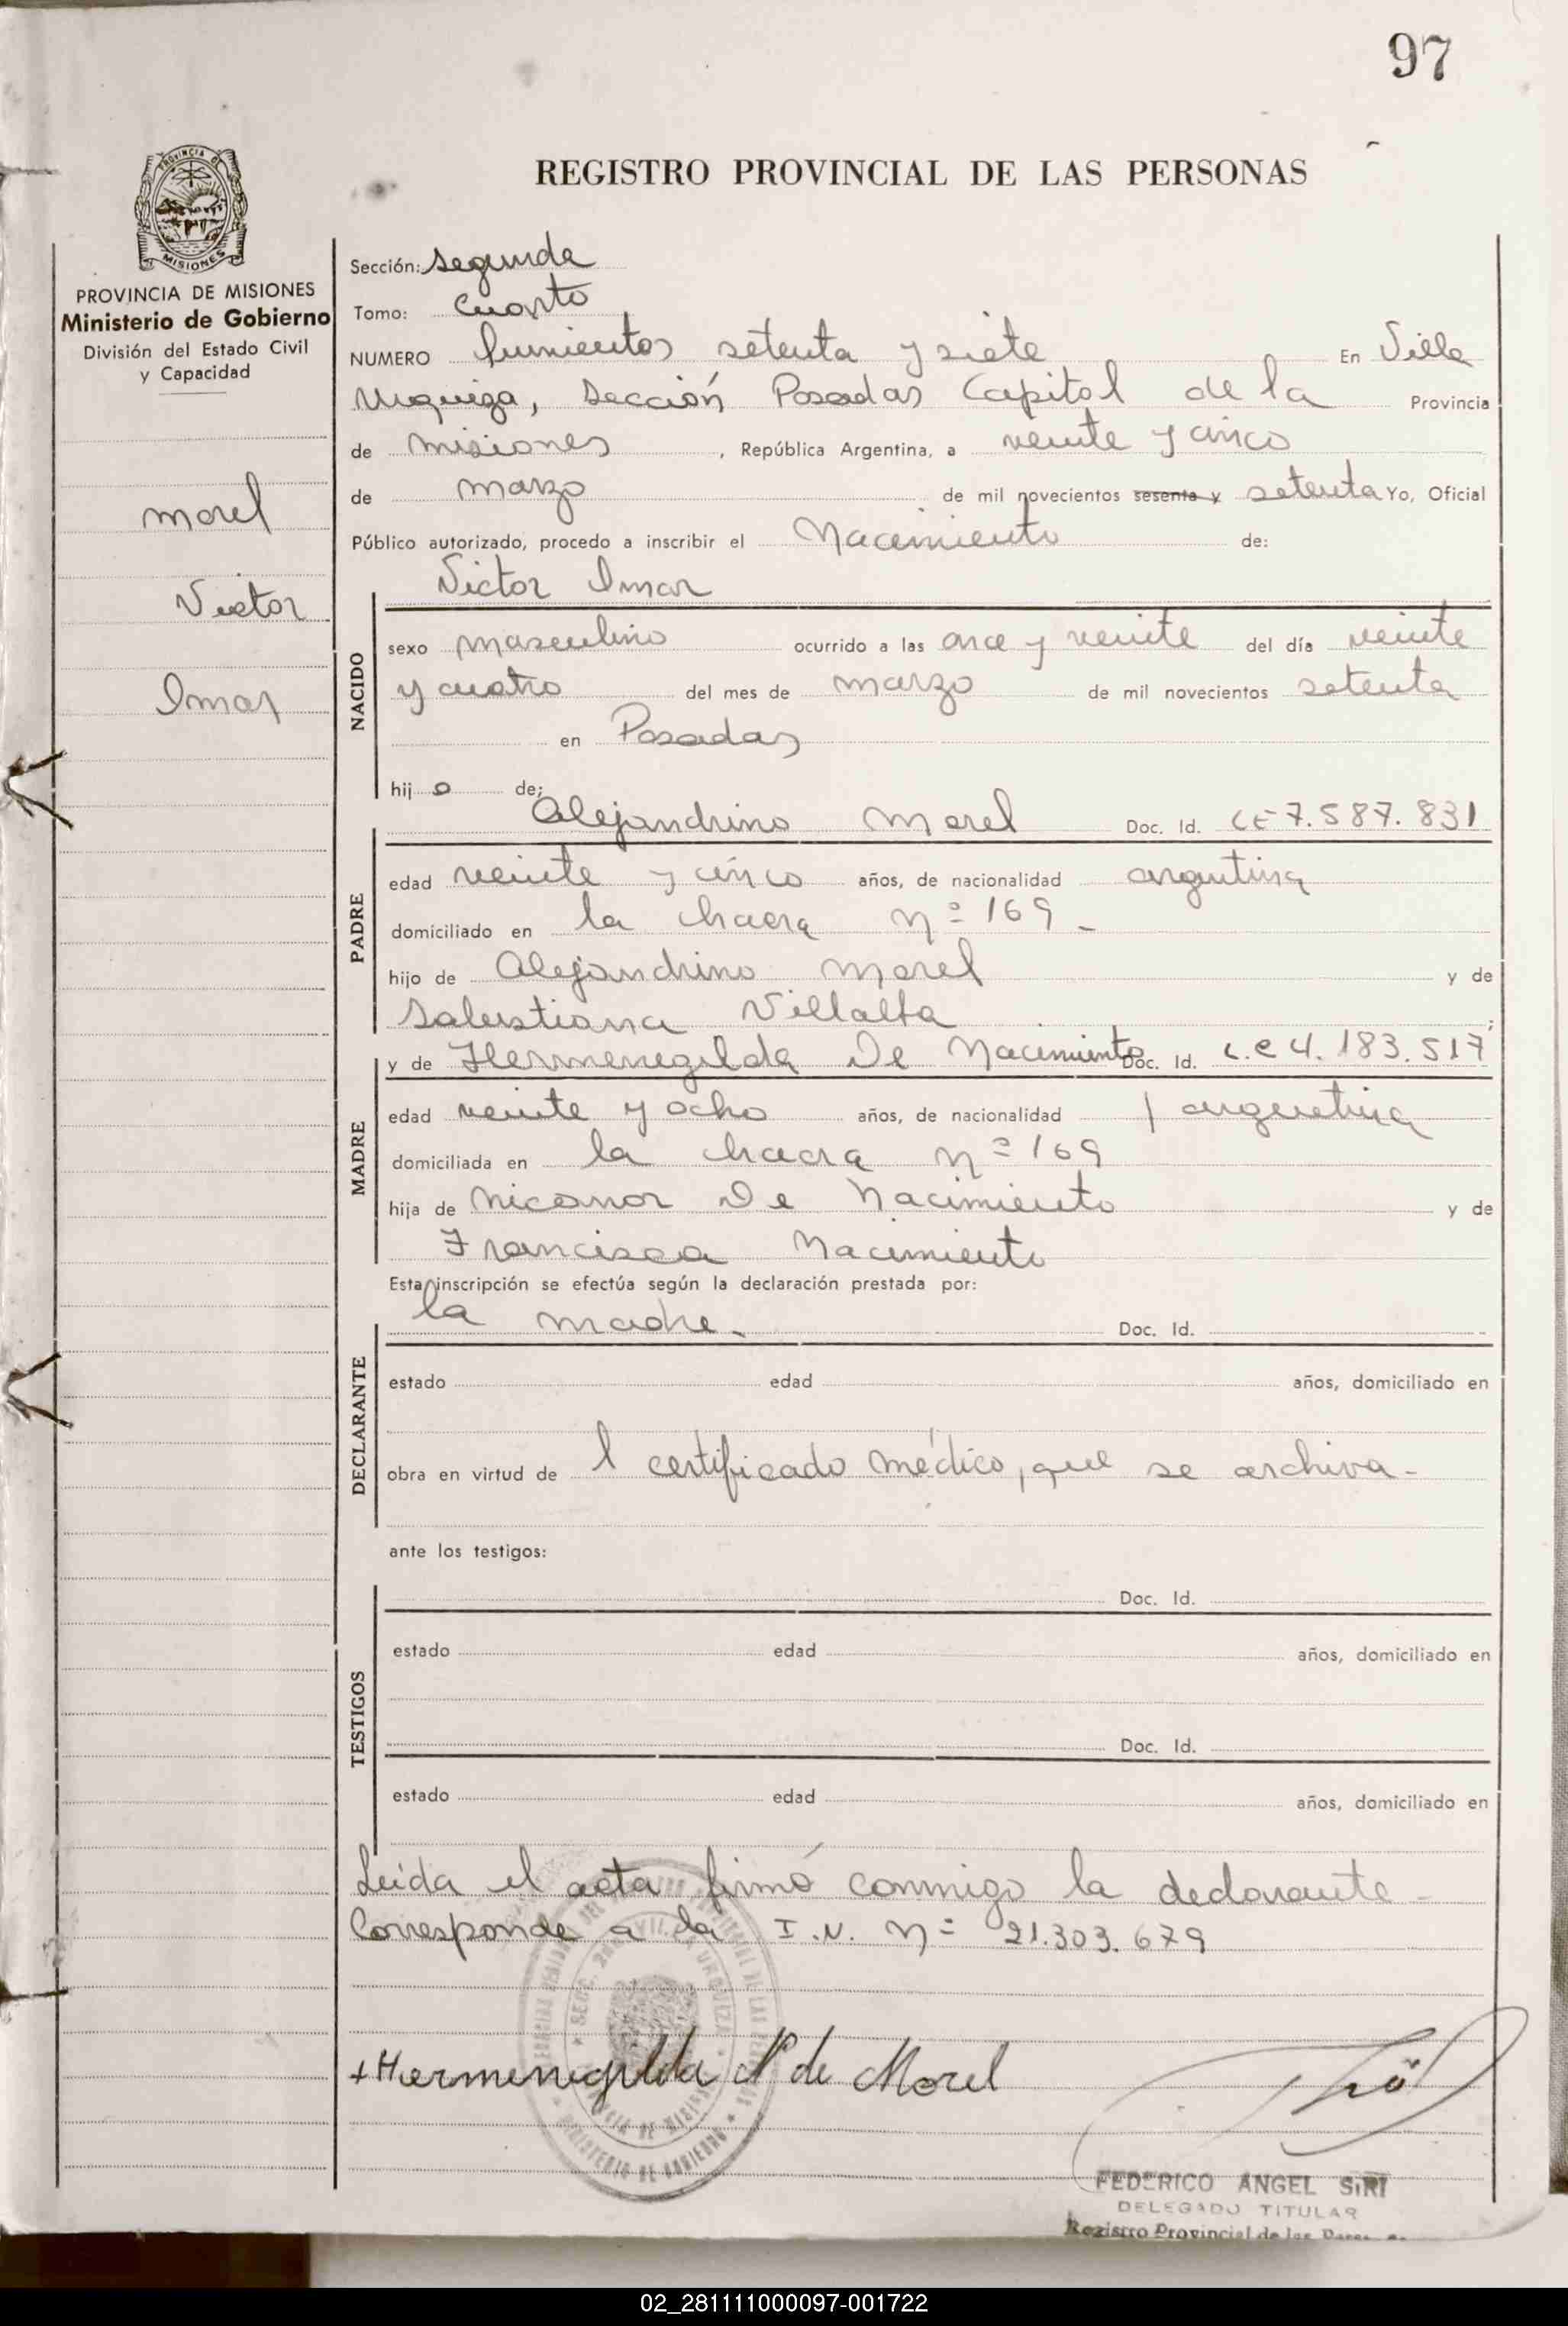 97
REGISTRO PROVINCIAL DE LAS PERSONAS
PROVINCIA DE MISIONES
Ministerio de Gobierno
División del Estado Civil
y Capacidad
Morel
Victor
Imar
Sección: Segunda
Tomo: Cuarto
NUMERO setenta y siete En Villa
Urquiza, Sección Posadas Capital de la Provincia
de Misiones, República Argentina, a veinte y cinco
de marzo de mil novecientos sesenta y setenta Yo, Oficial
Público autorizado, procedo a inscribir el Nacimiento de:
Victor Imar
NACIDO
sexo masculino ocurrido a las once y veinte del día veinte
y cuatro del mes de marzo de mil novecientos setenta
en Posadas
hijo de:
Alejandrino Morel Doc. Id. LE 7.587.831
PADRE
edad veinte y cinco años, de nacionalidad argentina
domiciliado en la chacra nº 169 -
hijo de Alejandrino Morel y de
Salustiana Villalta
y de Hermenegilda De Nacimiento Doc. Id. L.C 4.183.517
MADRE
edad veinte y ocho años, de nacionalidad argentina
domiciliada en la chacra nº 169
hija de Nicanor De Nacimiento y de
Francisca Nacimiento
Esta inscripción se efectúa según la declaración prestada por:
la madre. Doc. Id.
DECLARANTE
estado edad años, domiciliado en
obra en virtud de l certificado médico, que se archiva -
ante los testigos:
Doc. Id.
TESTIGOS
estado edad años, domiciliado en
Doc. Id.
estado edad años, domiciliado en
Leída el acta firmó conmigo la declarante -
Corresponde a la I.N. Nº 21.303.679
+Hermenegilda N de Morel
FEDERICO ANGEL SIRI
DELEGADO TITULAR
Registro Provincial de las
02_281111000097-001722